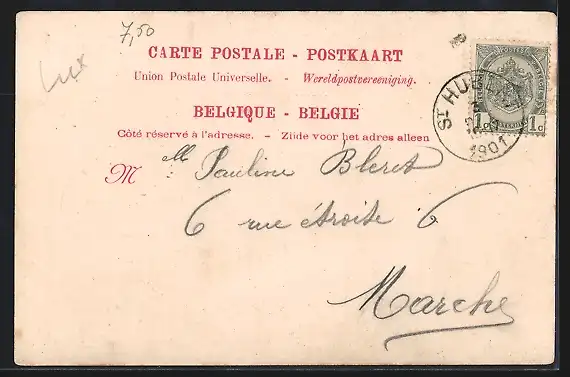 7,50
Lux
CARTE POSTALE - POSTKAART
Union Postale Universelle. - Wereldpostvereeniging.
BELGIQUE - BELGIE
Côté réservé à l'adresse. - Zijde voor het adres alleen
Mlle Pauline Bleret
6 rue étroite 6
Marche
ST HUBERT
1901
1c 1c